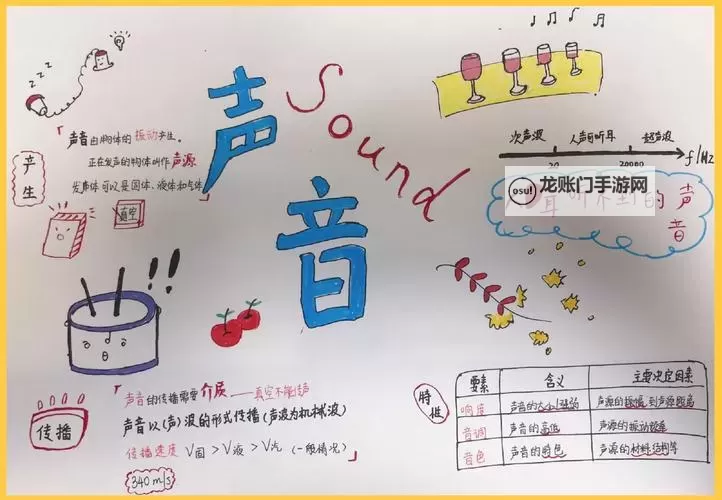 声音
Sound
zzz
产生
「声音由物体的振动产生.
正在发声的物体叫作声源
发声体可以是固体、液体和气体」
真空
!!
次声波 人声可听耳 超声波
20 20000 f/Hz
osu! 龙账门手游网
的声音
传播
「声音的传播需要介质——真空不能传声
声音以(声)波的形式传播(声波为机械波)
传播速度 V固>V液>V气(一般情况)」
340m/s
特性
要素 含义 主要决定因素
响度 声音的大小/强弱 声源的振幅,到声源距离
音调 声音的高低 声源的振动频率
音色 声音的特色 声源的材料结构等